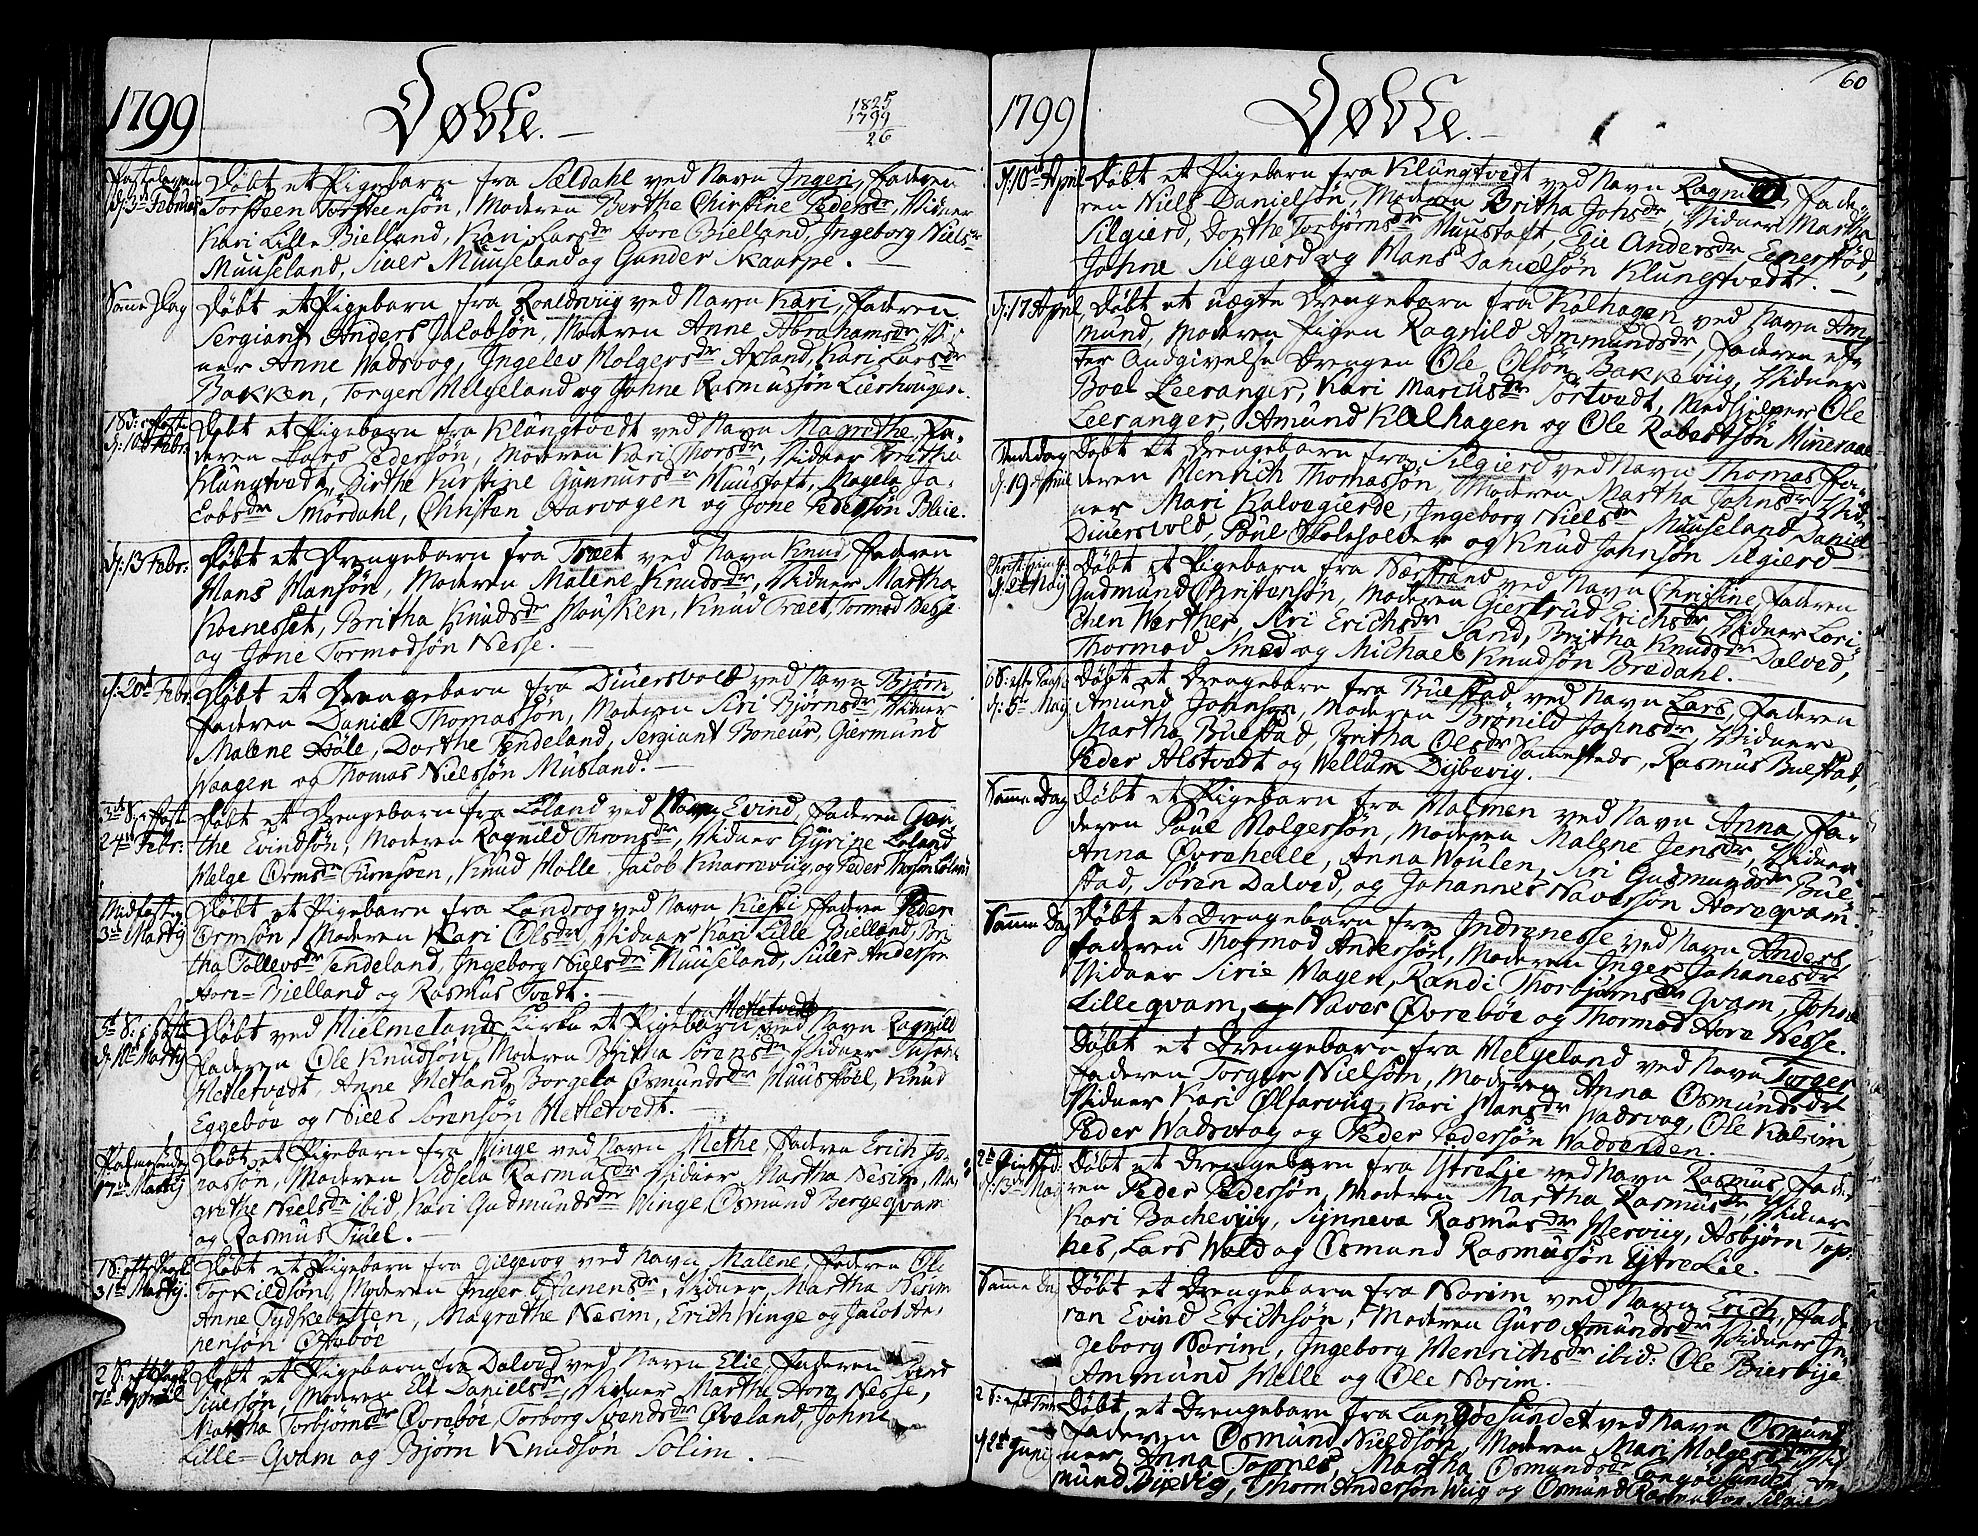 1799
Døbte.
1825
1799
26
Fastelagen
d: 3de Februar
Døbt et Pigebarn fra Sældahl ved Navn Ingeri, Faderen
Torsteen Torsteensøn, Moderen Berthe Chirstine Pedersdr, Vidner
Kari Lille Bielland, Kari Larsdr Hore Bielland, Ingeborg Nielsdr
Muuseland, Siver Muuseland og Gunder Skaarpe.
Same Dag
Døbt et Pigebarn fra Roaldsviig ved Navn Kari, Faderen
Sergiant Anders Jacobsøn, Moderen Anne Abrahamsdr, Vid-
ner Anne Wadsvog, Ingelev Holgersdr Axland, Kari Larsdr
Bakken, Torger Helgeland og Johne Rasmussøn Lierhungen.
1 S: i Fast
d: 10de Febr:
Døbt et Pigebarn fra Klungtvedt ved Navn Magrethe, Fa-
deren Lars Pedersøn, Moderen Kari Thorsdr, Vidner Britha
Klungtvedt, Birthe Kirstine Gunnursdr Muustoft, Magela Ja-
cobsdr Smørdahl, Christen Aarvagen og Jone Pedersøn Bleie.
d: 13 Febr:
Døbt et Drengebarn fra Træet ved Navn Knud, Faderen
Hans Hansøn, Moderen Malene Knudsdr, Vidner Martha
Kornesset, Britha Knudsdr Housken, Knud Træet, Tormod Nesse
og Jone Tormodsøn Nesse.
d: 20de Febr
Døbt et Drengebarn fra Diuersvold ved Navn Bjørn
Faderen Daniel Thomassøn, Moderen Siri Bjørnsdr, Vidner
Malene Høle, Dorthe Tendeland, Sergiant Boneur, Germund
Waagen og Thomas Nielssøn Musland.
3de S: i Fast
24de Febr:
Døbt et Drengebarn fra Leland ved Navn Evind, Faderen Gau
the Evindsøn, Moderen Ragnild Thronsdr, Vidner Gyrine Leland
Helge Ormsdr Furnsøen, Knud Molle, Jacob Knarreviig og Peder Leland
Midfaste
3de Martij
Døbt et Pigebarn fra Landrog ved Navn Kiersti Faderen Peder
Ormsøn, Moderen Kari Olsdr, Vidner Kari Lille Bielland, Bri
tha Tollevsdr Tendeland, Ingeborg Nielsdr Muuseland, Siuer Anderson
Hore-Bielland og Rasmus Tvedt.
S: i Faste
d: 10de Martij
Døbt ved Hielmelands Kirke et Pigebarn Hetletvedt ved Navn Ragnild
Faderen Ole Knudsøn, Moderen Britha Sørensdr, Vidner
Hetletvedt, Anne Hetland, Borgela Osmundsdr Muusstøel, Knud
Eggebøe og Niels Sørensøn Hetletvedt.
Palmesøndag
17de Martij
Døbt et Pigebarn fra Winge ved Navn Methe, Faderen Erich Jo-
nasson, Moderen Sidsela Rasmusdr, Vidner Martha Nesim, Ma-
grethe Nielsdr ibid, Kari Gudmundsdr Winge, Osmund Bergeqvam
og Rasmus Tiuel.
1 S: efter Paask
31te Martij
Døbt et Pigebarn fra Gilgevog ved Navn Malene, Faderen Ole
Torkildsøn, Moderen Inger Ephanensdr, Vidner, Martha Nesim
Anne Tydskebotten, Magrethe Nesim, Erich Winge og Jacob Ha-
nensøn Østhaboe
2 S: eft Paask
7de Aprül
Døbt et Pigebarn fra Dalved ved Navn Elie Faderen Tore
Siuersøn, Moderen Eli Danielsdr, Vidner Marthe Hore Nesse,
Martha Torbjørnsdr Øvrebøe, Torborg Svendsdr Øveland, Johne
Lille-Qvam og Bjørn Knudsøn Solim.
60
1799
Døbte.
d: 10de April
Døbt et Pigebarn fra Klungtvedt ved Navn Ragnild, Fade-
ren Niels Danielsøn, Moderen Britha Johsdr, Vidner Martha
Silgierd, Dorthe Torbjørnsdr Muustoft, Elie Andersdr Eenerstød,
Johne Silgierd og Hans Danielsøn Klungtvedt.
d: 17 April
Døbt et uægte Drengebarn fra Kalhagen ved Navn Am-
mund, Moderen Pigen Ragnild Ammundsdr, Faderen eft-
ter Angivelse Drengen Ole Olsøn Bakkeviig, Vidner
Boel Leeranger, Kari Marcusdr Tortvedt, Medhjelper Ole
Leeranger, Amund Kalhagen og Ole Robertsøn Mineraae.
Bededag
d: 19 April
Døbt et Drengebarn fra Silgierd ved Navn Thomas Fa-
deren Henrich Thomassøn, Moderen Martha Johnsdr, Vid-
ner Mari Kalvegierde, Ingeborg Nielsdr Muuseland Daniel
Diuersvold, Poul Skoleholder og Knud Johnsøn Silgierd
Christi him f.
d: 2de Maij
Døbt et Pigebarn fra Nærstrand ved Navn Christine, Faderen
Gudmund Christensøn, Moderen Giertrud Erichsdr, Vidner Lori-
chen Werther, Siri Erichsdr Sand, Britha Knudsdr Dalved,
Thormod Smed og Michael Knudsøn Bredahl.
6 S: eft Paaske
d: 5te Maij
Døbt et Drengebarn fra Buestad ved Navn Lars, Faderen
Amund Johnsøn, Moderen Bronild Johnsdr, Vidner
Martha Buestad, Britha Olsdr Sammesteds, Rasmus Buestad,
Peder Alstvedt og Wellum Dybevig.
Samme Dag
Døbt et Pigebarn fra Malmen ved Navn Anna, Fa-
deren Poul Holgersøn, Moderen Malene Jensdr, Vidner
Anna Øvrehelle, Anna Woulen, Siri Gudmundsdr Bue-
stad, Søren Dalved, og Johannes Naversøn Horeqvam.
Samme Dag
Døbt et Drengebarn fra Indrenesse ved Navn Anders,
Faderen Thormod Andersøn, Moderen Inger Johanesdr
Vidner Sirie Hagen, Randi Thorbjørnsdr Qvam, Johne
Lilleqvam, Naver Øvrebøe og Thormod Hore Nesse.
Døbt et Drengebarn fra Helgeland ved Navn Torger
Faderen Torger Nielsøn, Moderen Anna Osmundsdr
Vidner Kari Olfarviig, Kari Hansdr Wadsvog, Ole Kalsim
Peder Wadsvog og Peder Pedersøn Wadsenden.
2de Pintsed
d: 13de Maij
Døbt et Drengebarn fra Ytrelie ved Navn Rasmus, Fade-
ren Peder Pedersøn, Moderen Martha Rasmusdr, Vidner
Kari Bacheviig, Synneva Rasmusdr Wierviig, Asbjørn Top-
nes, Lars Wold og Osmund Rasmussøn Ytrelie.
Samme Da
Døbt et Drengebarn fra Norim ved Navn Erich, Fade-
ren Evind Erichsøn, Moderen Guro Amundsdr Vidner In-
geborg Norim, Ingeborg Henrichsdr ibid: Ole Biervije
Ammund Helle og Ole Norim.
2 S: eft Trin
d: 2de Junij
Døbt et Drengebarn fra Langøesundet ved Navn Osmund
Faderen Osmund Nieldsøn, Moderen Mari Holgersdr Vid-
ner, Anna Topnes, Martha Osmundsdr Langøesundet Am-
mund Bjievig, Thorn Andersøn Wiig og Osmund Rasmussøn Silgie